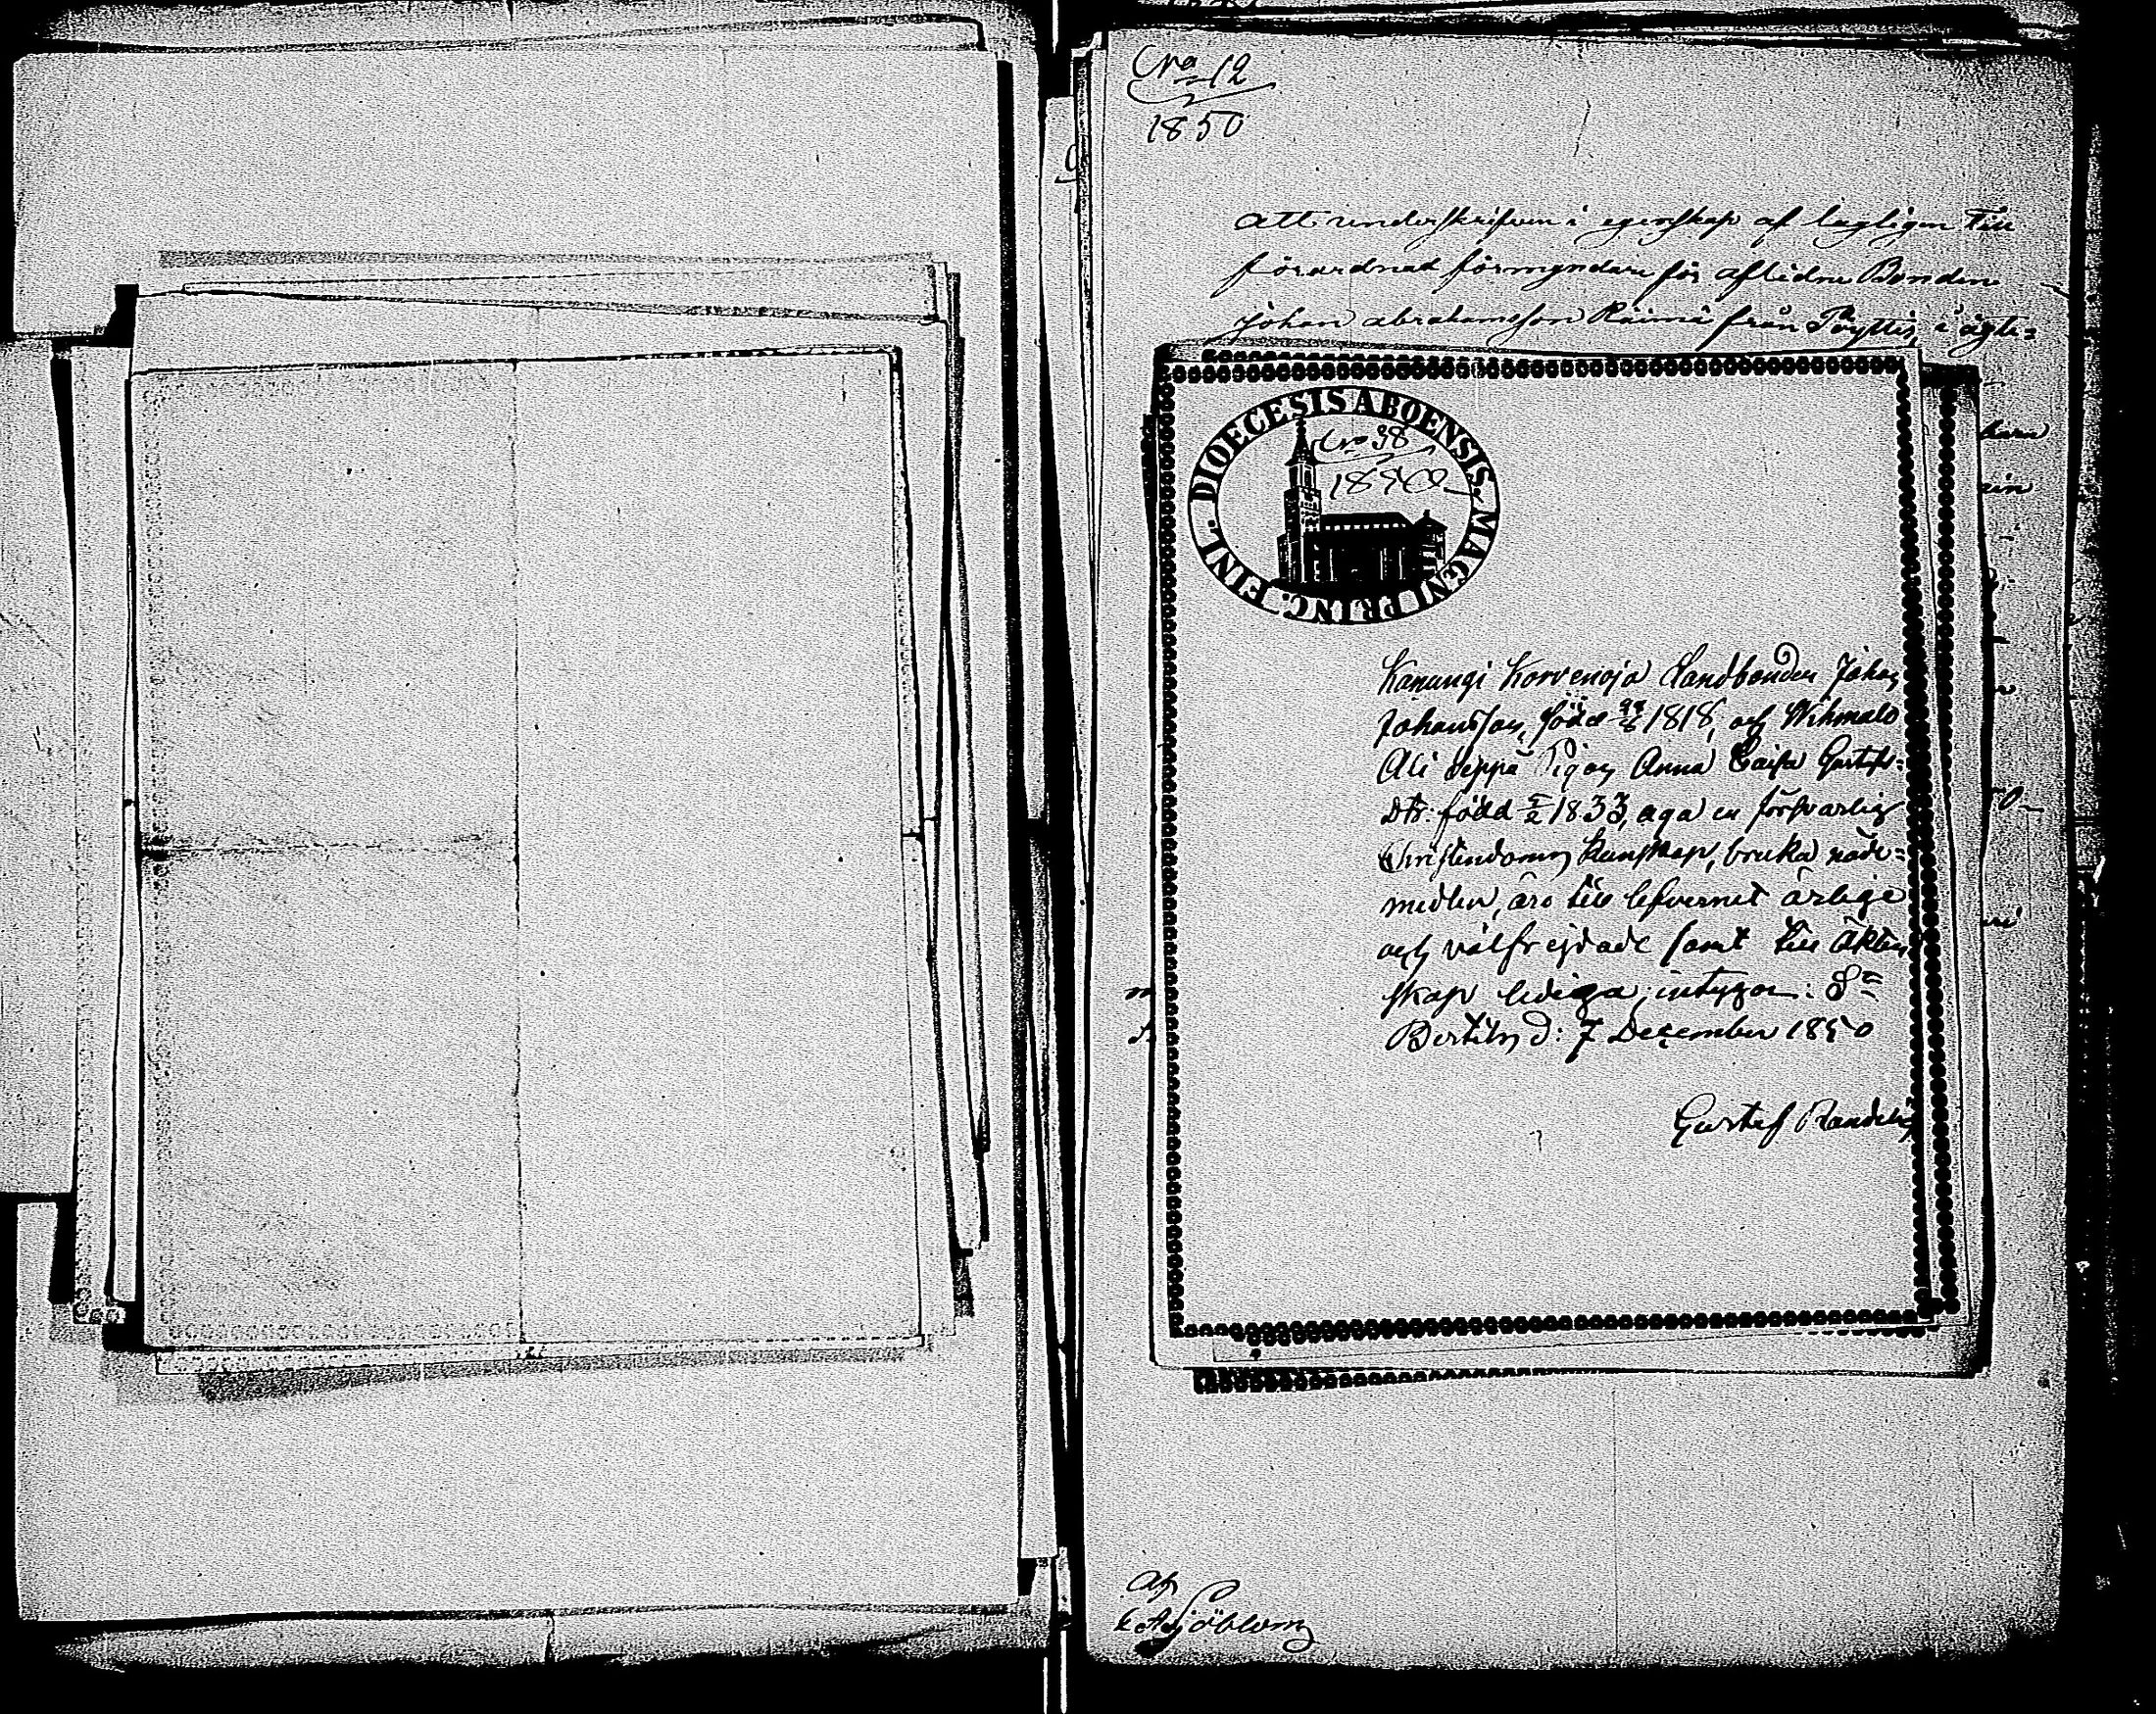 Nro 12
1850
att underskrifven i egenskap af lagligen till
förordnad förmyndare för aflidne Bonden
Johan Abrahamsson Räimä från Pöyttis, i ägte-
DIOECESIS ABOENSIS MAGNI PRINC. FINL.
Nro 38
1850
Kanungi Korvenoja Landbonden Johan
Johansson, född 1818, och Wihmalo
Ali Seppä Pigan Anna Caisa Gustafs-
dtr: född 1833, äga en försvarlig
Christendoms kunskap, bruka nåde-
medlen, äro till lefvernet ärlige
och välfrejdade samt till äkten-
skap lediga; intygar: St
Bertils d: 7 December 1850
Gustaf Randelin
af
Sjöblom